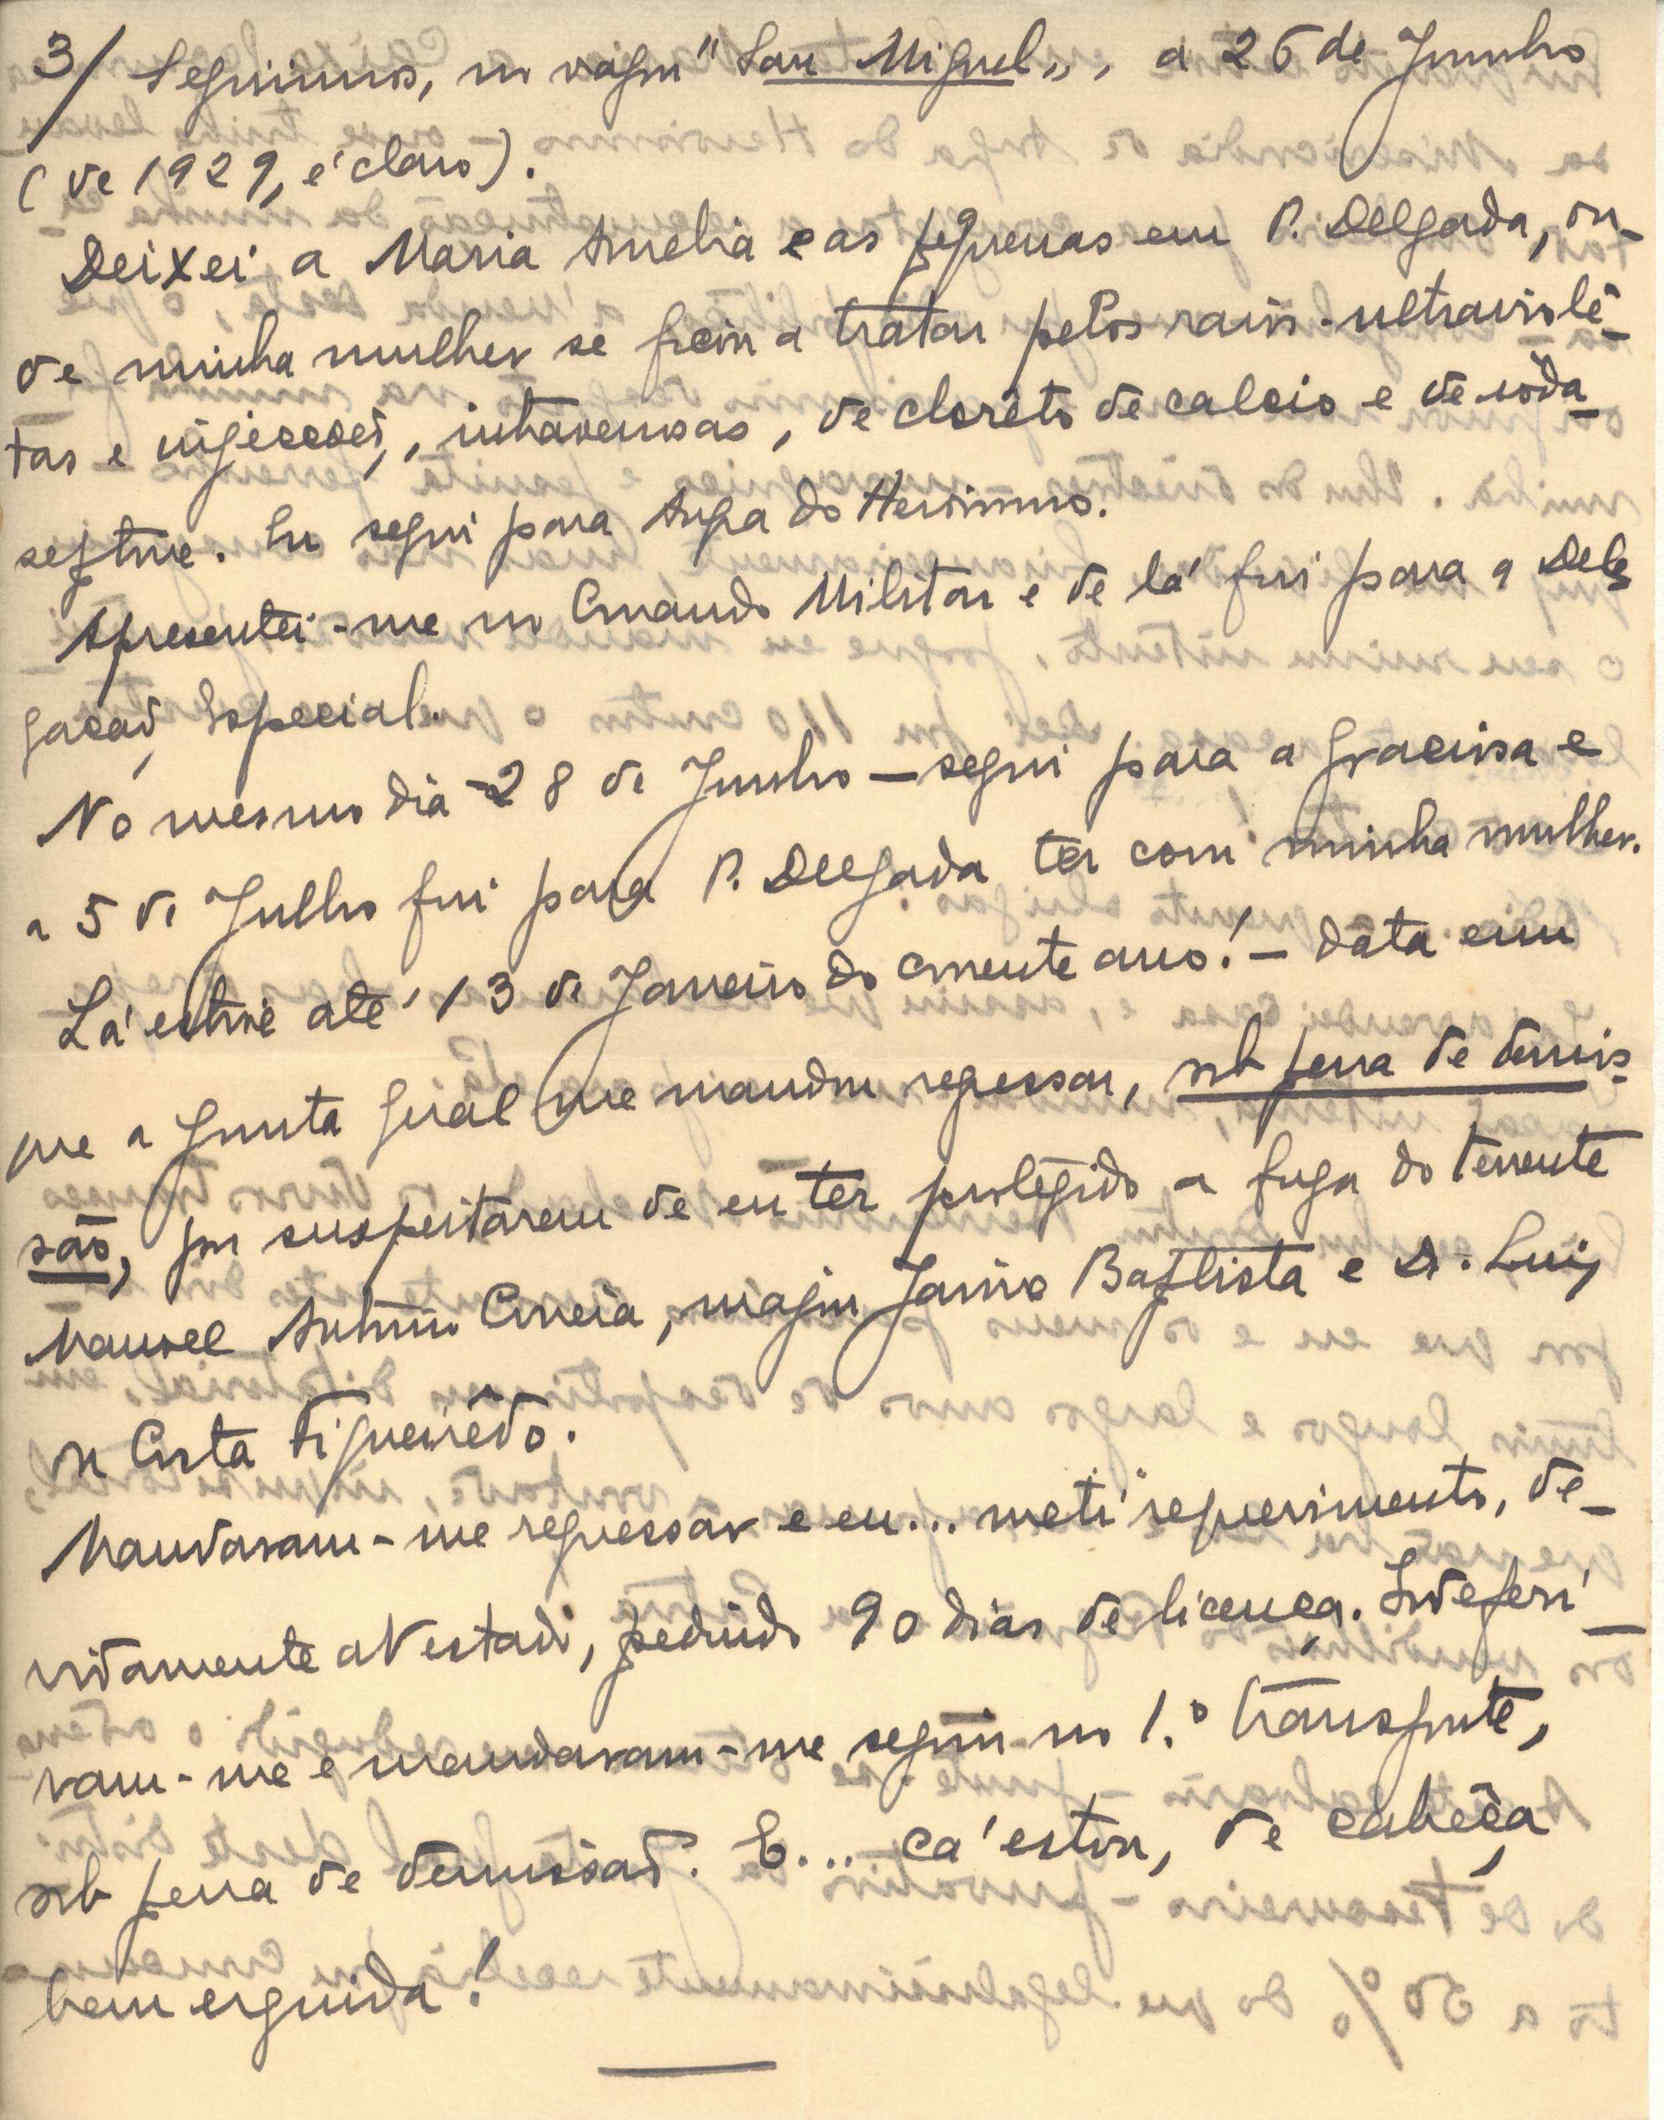 3/ Seguimos, no vapor "San Miguel", a 26 de Junho
(de 1929, é claro).
Deixei a Maria Amelia e as pequenas em P. Delgada, on-
de minha mulher se ficou a tratar pelos raios-ultraviolê-
tas e injecções, intravenosas, de cloreto de calcio e de ioda-
septine. Eu segui para Angra do Heroismo.
Apresentei-me no Comando Militar e de lá fui para a Dele-
gação Especial.
No mesmo dia -28 de Junho - segui para a Graciosa e
a 5 de Julho fui para P. Delgada ter com minha mulher.
Lá estive até 13 de Janeiro do corrente ano! - data em
que a Junta Geral me mandou regressar, sob pena de demis-
são, por suspeitarem de eu ter protegido a fuga do tenente
Manoel António Correia, major Jaime Baptista e Dr. Luiz
da Costa Figueirêdo.
Mandaram-me regressar e eu... meti requerimento, de-
vidamente atestado, pedindo 90 dias de licença. Indeferi-
ram-me e mandaram-me seguir no 1.º transporte,
sob pena de demissão. E... cá estou, de cabêça
bem erguida!